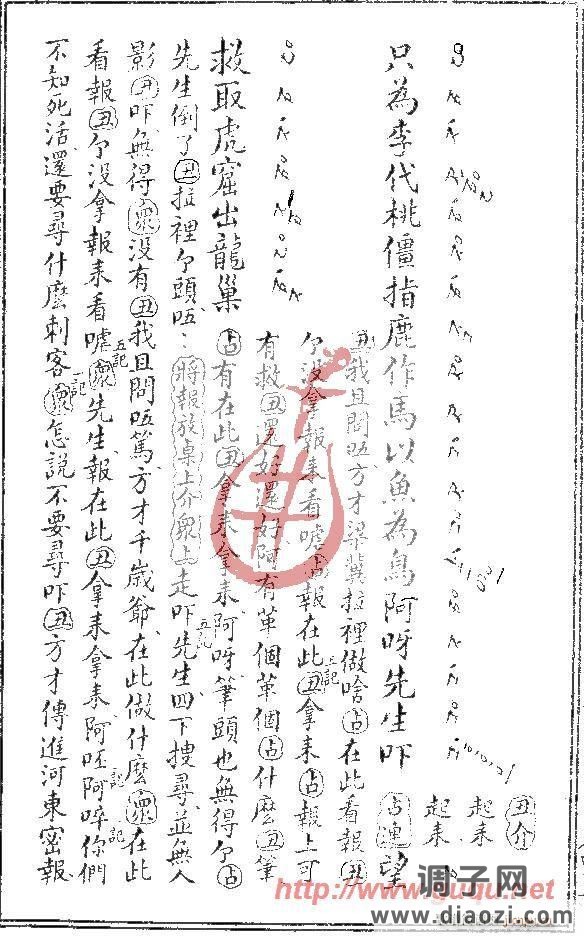 丑介
起来
起来
占連望
只為李代桃僵指鹿作馬以魚為鳥阿呀先生吓
丑我且問唔方才梁冀拉裡做啥占在此看報丑
尒没拿報来看嘘占報在此丑拿来占報上可
有救丑還好還好阿有革個革個占什麽丑筆
救取虎窟出龍巢
占有在此丑拿来拿来阿呀筆頭也無得尒占
先生倒了丑拉裡尒頭唔將報放桌上介眾上走吓先生四下搜尋並無人
影丑吓無得眾没有丑我且問唔篤方才千歲爺在此做什麽眾在此
看報丑尒没拿報来看嘘眾先生報在此丑拿来拿来阿呸阿啐你們
不知死活還要尋什麽刺客眾怎説不要尋吓丑方才傳進河東密報
http://www.guqu.net
调子网
www.diaozi.com